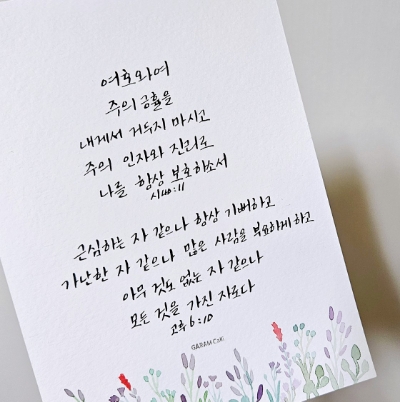 여호와여
주의 긍휼을
내게서 거두지 마시고
주의 인자와 진리로
나를 항상 보호하소서
시40:11
근심하는 자 같으나 항상 기뻐하고
가난한 자 같으나 많은 사람을 부요하게 하고
아무 것도 없는 자 같으나
모든 것을 가진 자로다
고후6:10